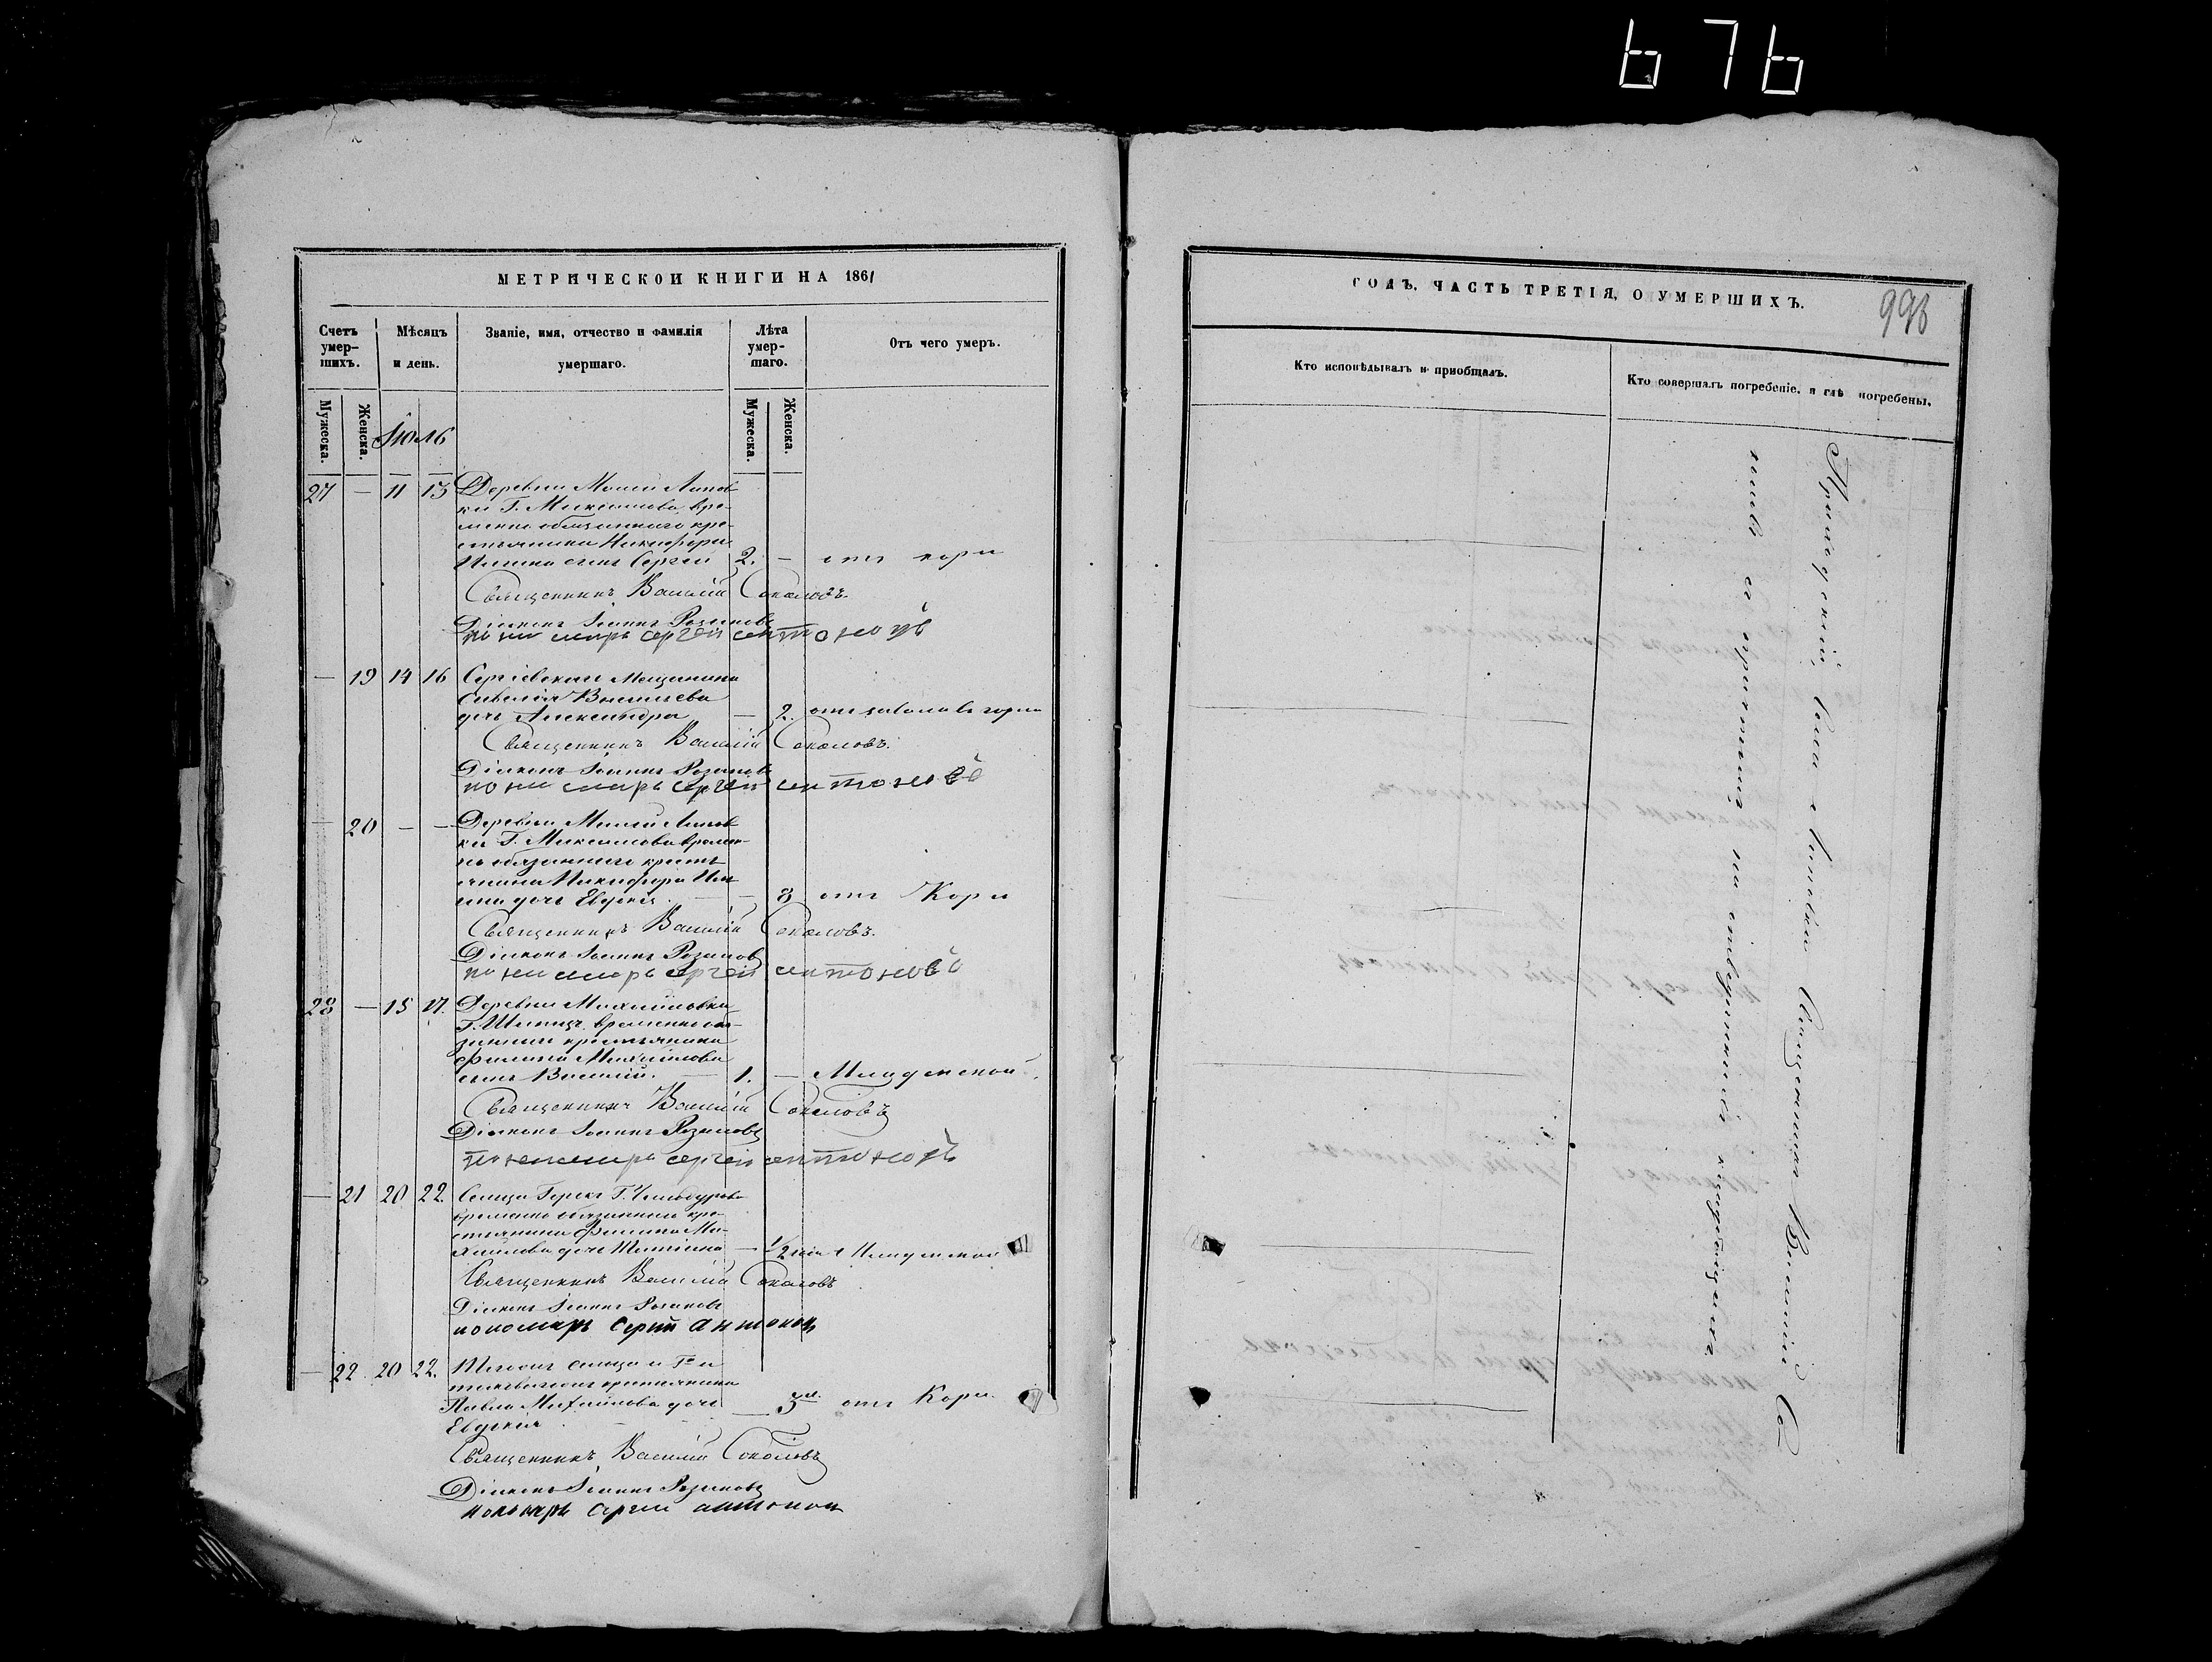 676
МЕТРИЧЕСКОЙ КНИГИ НА 1861
Счетъ умер-шихъ.
Мѣсяцъ и день.
Званіе, имя, отчество и фамилія умершаго.
Лѣта умер-шаго.
Отъ чего умеръ.
Мужеска.
Женска.
Іюль
Мужеска.
Женска.
27 — 11 13 Деревни Малой Липов
ки Г. Максимова вре-
менно обязаннаго кре-
стьянина Никифора
сынъ Сергей 2. — отъ кори
Священникъ Василій Соколовъ.
Діаконъ Іоаннъ Розановъ
пономарь Сергей Антоновъ
— 19 14 16 Сергіевскаго Мещанина
Васильева
дочь Александра — 2.
Священникъ Василій Соколовъ.
Діаконъ Іоаннъ Розановъ
пономарь Сергей Антоновъ
— 20 — — Деревни Малой Липов
ки Г. Максимова времен-
но обязаннаго кресть
янина Никифора
дочь Евдокія — 8 отъ Кори
Священникъ Василій Соколовъ.
Діаконъ Іоаннъ Розановъ
пономарь Сергей Антоновъ
28 — 15 17. Деревни Михайловки
Г. временно обя-
заннаго крестьянина
Филипа Михайлова
сынъ Василій. — 1. — Младенской.
Священникъ Василій Соколовъ
Діаконъ Іоаннъ Розановъ
пономарь Сергей Антоновъ
— 21 20 22. Сельца Г.
временно обязаннаго кре-
стьянина Филипа Ми-
хайлова дочь Татіана — 1/2 Младенской
Священникъ Василій Соколовъ
Діаконъ Іоаннъ Розановъ
пономарь Сергий Антоновъ
— 22. 20 22. сельца Г.
крестьянина
Павла Михайлова дочь — 3 отъ Кори
Евдокія
Священникъ Василій Соколовъ
Діаконъ Іоаннъ Розановъ
пономарь Сергии Антоновъ
ГОДЪ, ЧАСТЬ ТРЕТІЯ, О УМЕРШИХЪ.
998
Кто исповѣдывалъ и пріобщалъ.
Кто совершалъ погребеніе, и гдѣ погребены.
Приходскій села Липовки Священникъ Василій Со
съ причтомъ на отведенномъ кладбищѣ